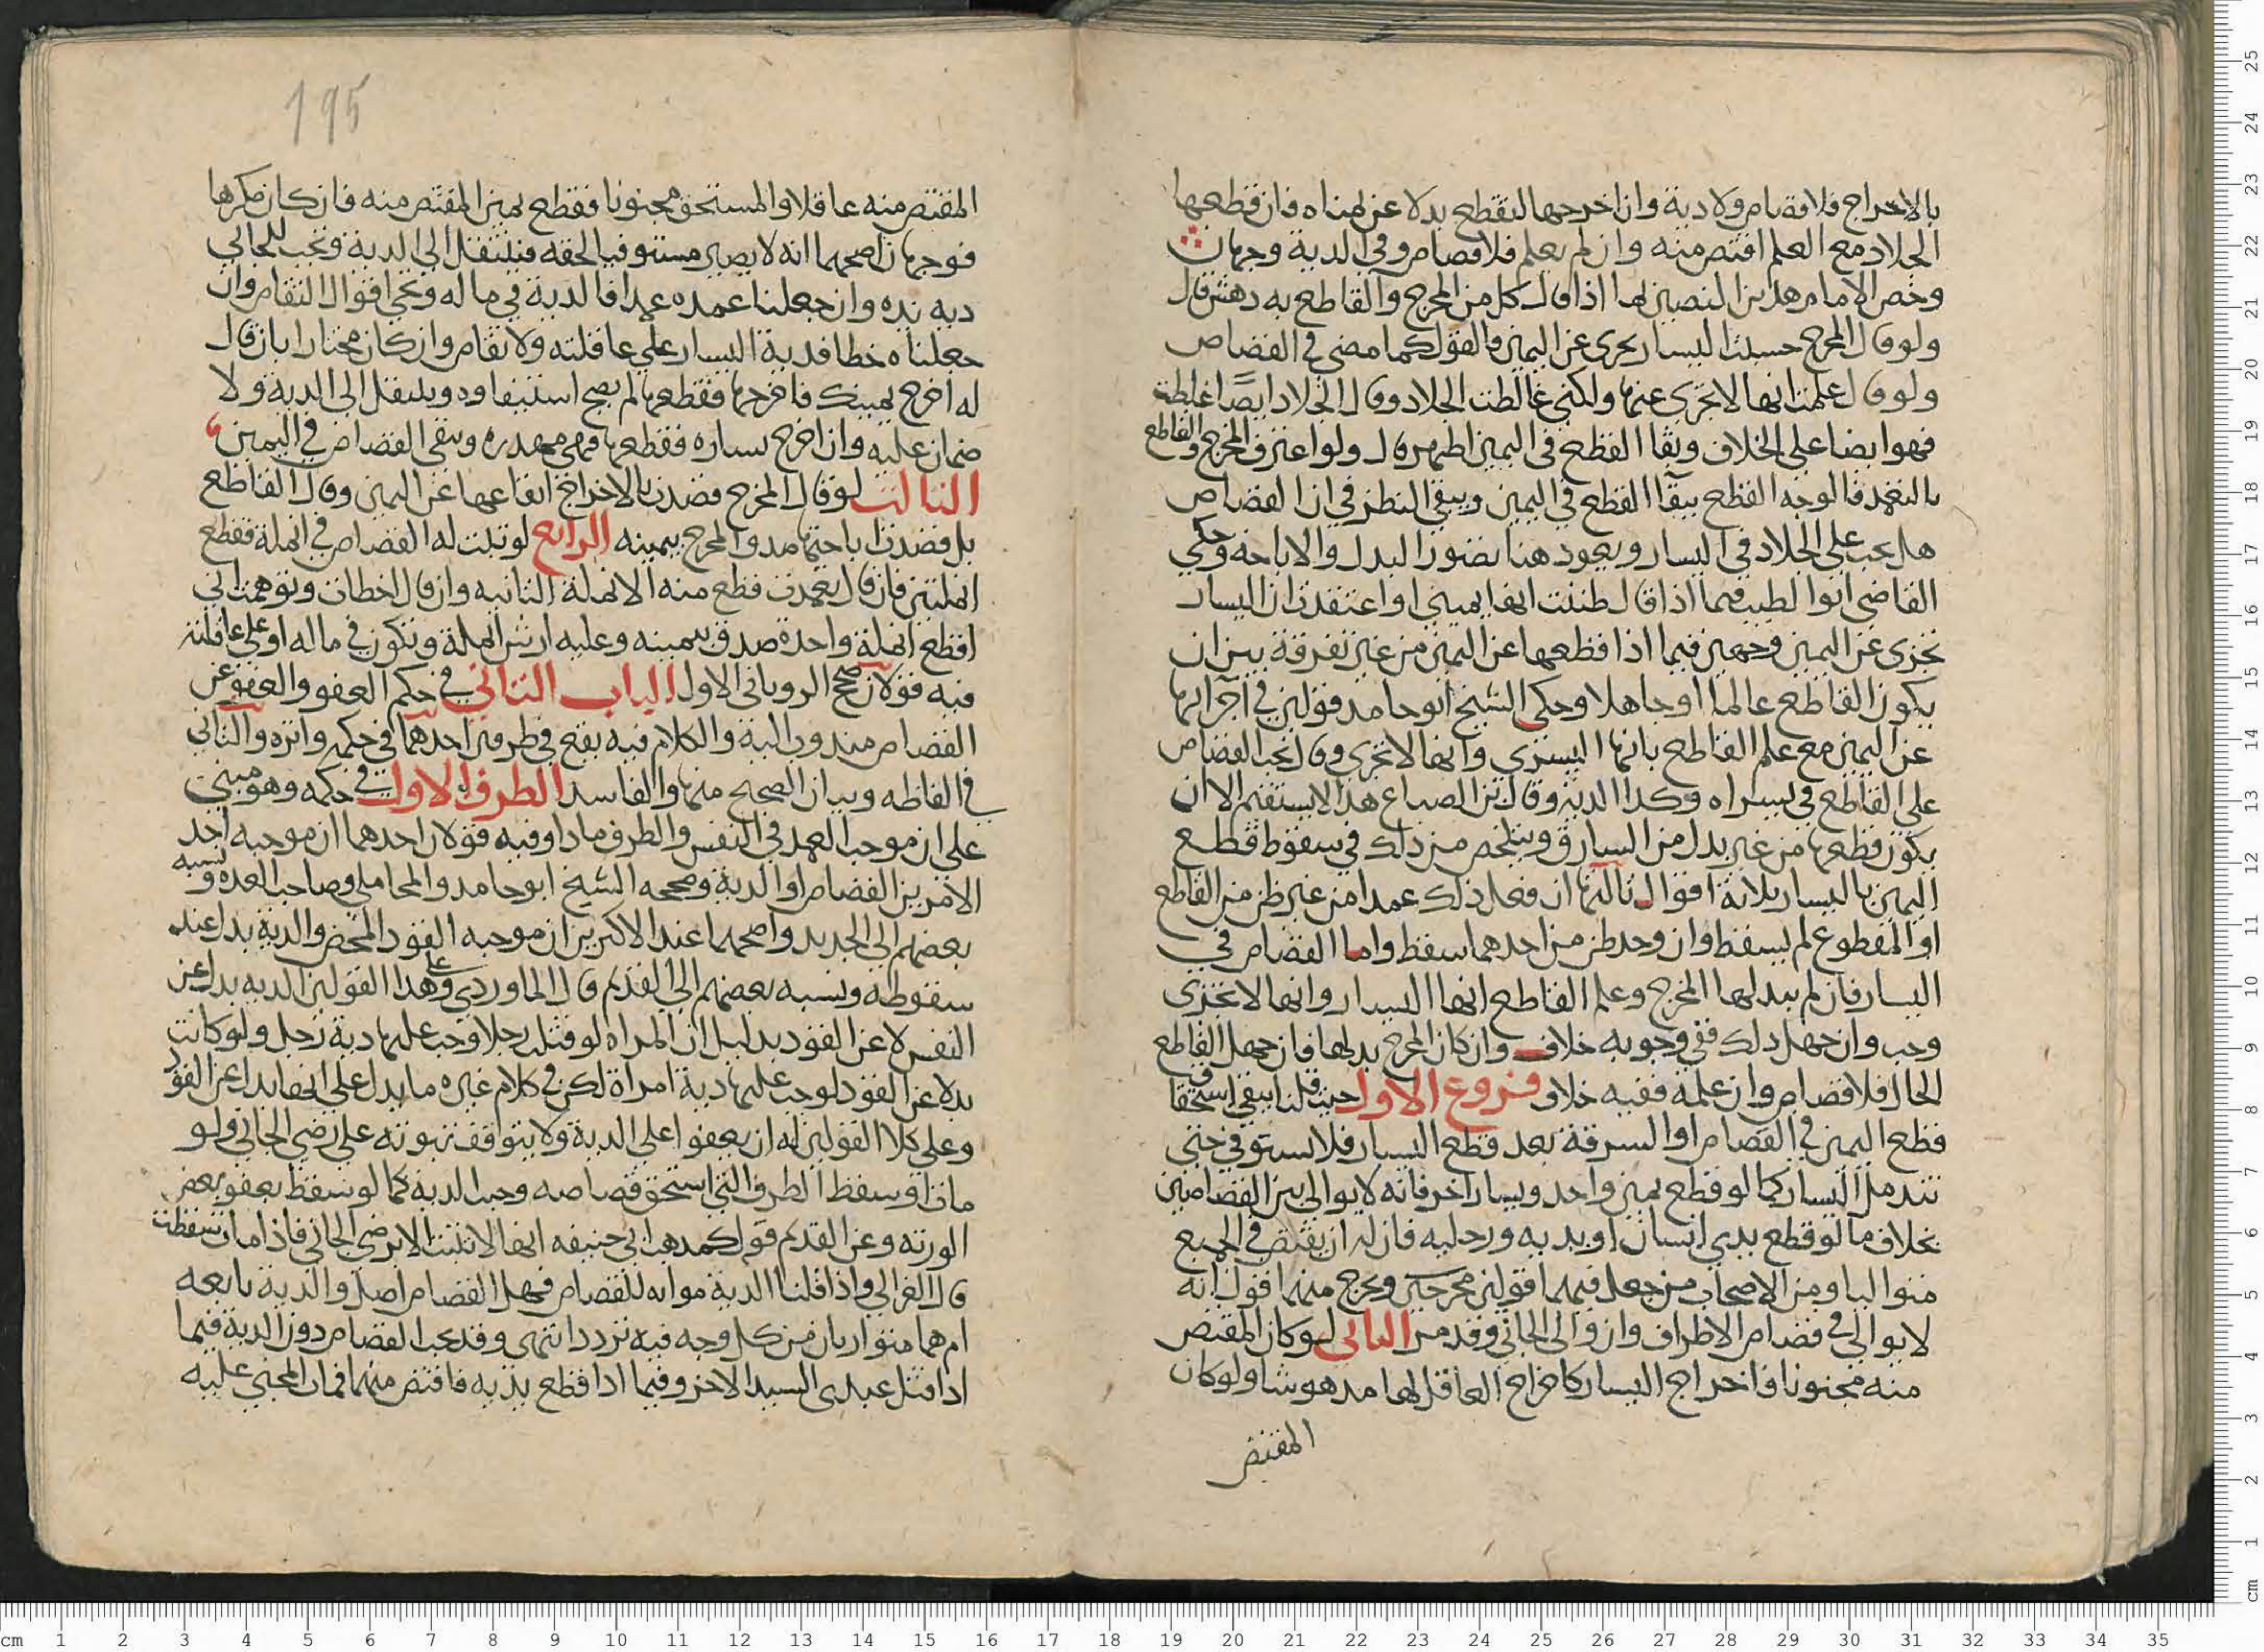 بالاخراج فلا قصاص ولا دية وان اخرجها لتقطع بدلا عن يمناه فان قطعها
الجلاد مع العلم اقتص منه وان لم يعلم فلا قصاص وفي الدية وجهان
وخص الامام هذين النصين بما اذا قال كل من المخرج والقاطع به دهش قال
ولو قال المخرج حسبت اليسار يجزى عن اليمين فالقول كما مضى في القصاص
ولو قال علمت انها لا تجزى عنها ولكنى غالطت الجلاد وقال الجلاد ايضا غلطت
فهو ايضا على الخلاف وبقا القطع في اليمين اظهر قال ولو اعترف المخرج والقاطع
بالتعمد فالوجه القطع ببقا القطع في اليمين ويبقى النظر في ان القصاص
هل يجب على الجلاد في اليسار ويعود هنا تصور البدل والاباحة وحكي
القاضي ابو الطيب فيما اذا قال ظننت انها يميني او اعتقدت ان اليسار
تجزى عن اليمين وجهين فيما اذا قطعها عن اليمين من غير تفرقة بين ان
يكون القاطع عالما او جاهلا وحكى الشيخ ابو حامد قولين في اجزائها
عن اليمين مع علم القاطع بانها اليسرى وانها لا تجزى وقال يجب القصاص
على القاطع في يسراه وكذا الدية وقال ابن الصباغ هذا لا يستقيم الا ان
يكون قطعها من غير بدل من السارق ويتلخص من ذلك في سقوط قطع
اليمين باليسار ثلاثة اقوال ثالثها ان فعل ذلك عمدا من غير ظن من القاطع
او المقطوع لم يسقط وان وجد ظن من احدهما سقط واما القصاص في
اليسار فان لم يبدلها المخرج وعلم القاطع انها اليسار وانها لا تجزى
وجب وان جهل ذلك ففي وجوبه خلاف وان كان المخرج بدلها فان جهل القاطع
الحال فلا قصاص وان علمه ففيه خلاف فروع الاول حيث قلنا يبقى استحقاق
قطع اليمين في القصاص او السرقة بعد قطع اليسار فلا يستوفي حتى
تندمل اليسار كما لو قطع يمين واحد ويسار اخر فانه لا يوالي بين القصاصين
بخلاف ما لو قطع يدي انسان او يديه ورجليه فان له ان يقتص في الجميع
متواليا ومن الاصحاب من جعل فيهما قولين مخرجين ويخرج منهما قول انه
لا يوالي في قصاص الاطراف وان والى الجاني وقد مر الثاني لو كان المقتص
منه مجنونا فاخراج اليسار كاخراج العاقل لها مدهوشا ولو كان
المقتص
195
المقتص منه عاقلا والمستحق مجنونا فقطع يمين المقتص منه فان كان مكرها
فوجهان اصحهما انه لا يصير مستوفيا لحقه فينتقل الى الدية وتجب للجاني
دية يده وان جعلنا عمده عمدا فالدية في ماله وتجي اقوال التقاص وان
جعلناه خطا فدية اليسار على عاقلته ولا تقاص وان كان مختارا بان قال
له اخرج يمينك فاخرجها فقطعها لم يصح استيفاوه وينتقل الى الدية ولا
ضمان عليه وان اخرج يساره فقطعها فهي مهدره ويبقى القصاص في اليمين
الثالث لو قال المخرج قصدت بالاخراج ايقاعها عن اليمين وقال القاطع
بل قصدت اباحتها صدق المخرج بيمينه الرابع لو ثبت له القصاص في انملة فقطع
انملتين فان قال تعمدت قطع منه الانملة الثانيه وان قال اخطات وتوهمت اني
اقطع انملة واحدة صدق بيمينه وعليه ارش انملة وتكون في ماله او على عاقلته
فيه قولان صحح الروياني الاول الباب الثاني في حكم العفو والعفو عن
القصاص مندوب اليه والكلام فيه يقع في طرفين احدهما في حكمه واثره والثاني
في الفاظه وبيان الصحيح منها والفاسد الطرف الاول في حكمه وهو مبني
على ان موجب العمد في النفس والطرف ماذا وفيه قولان احدهما ان موجبه احد
الامرين القصاص او الدية وصححه الشيخ ابو حامد والمحاملي وصاحب العده ونسبه
بعضهم الى الجديد واصحهما عند الاكثرين ان موجبه القود المحض والدية بدل عند
سقوطه ونسبه بعضهم الى القديم قال الماوردي وعلى هذا القولين الديه بدل عن
النفس لا عن القود بدليل ان المراه لو قتلت رجلا وجب عليها دية رجل ولو كانت
بدلا عن القود لوجب عليها دية امراة لكن في كلام غيره ما يدل على انها بدل عن القود
وعلى كلا القولين له ان يعفوا على الدية ولا يتوقف ثبوته على رضي الجاني ولو
مات او سقط الطرف الذي استحق قصاصه وجبت الدية كما لو سقط بعفو بعض
الورثه وعن القديم قول كمذهب ابي حنيفه انها لا تثبت الا برضي الجاني فاذا مات سقطت
قال الغزالي واذا قلنا الدية موازنه للقصاص فهل القصاص اصل والدية تابعه
ام هما متوازيان من كل وجه فيه تردد انتهى وقد يجب القصاص دون الدية فيما
اذا قتل عبدي السيد الاخر وفيما اذا قطع يديه فاقتص منهما فمات المجني عليه